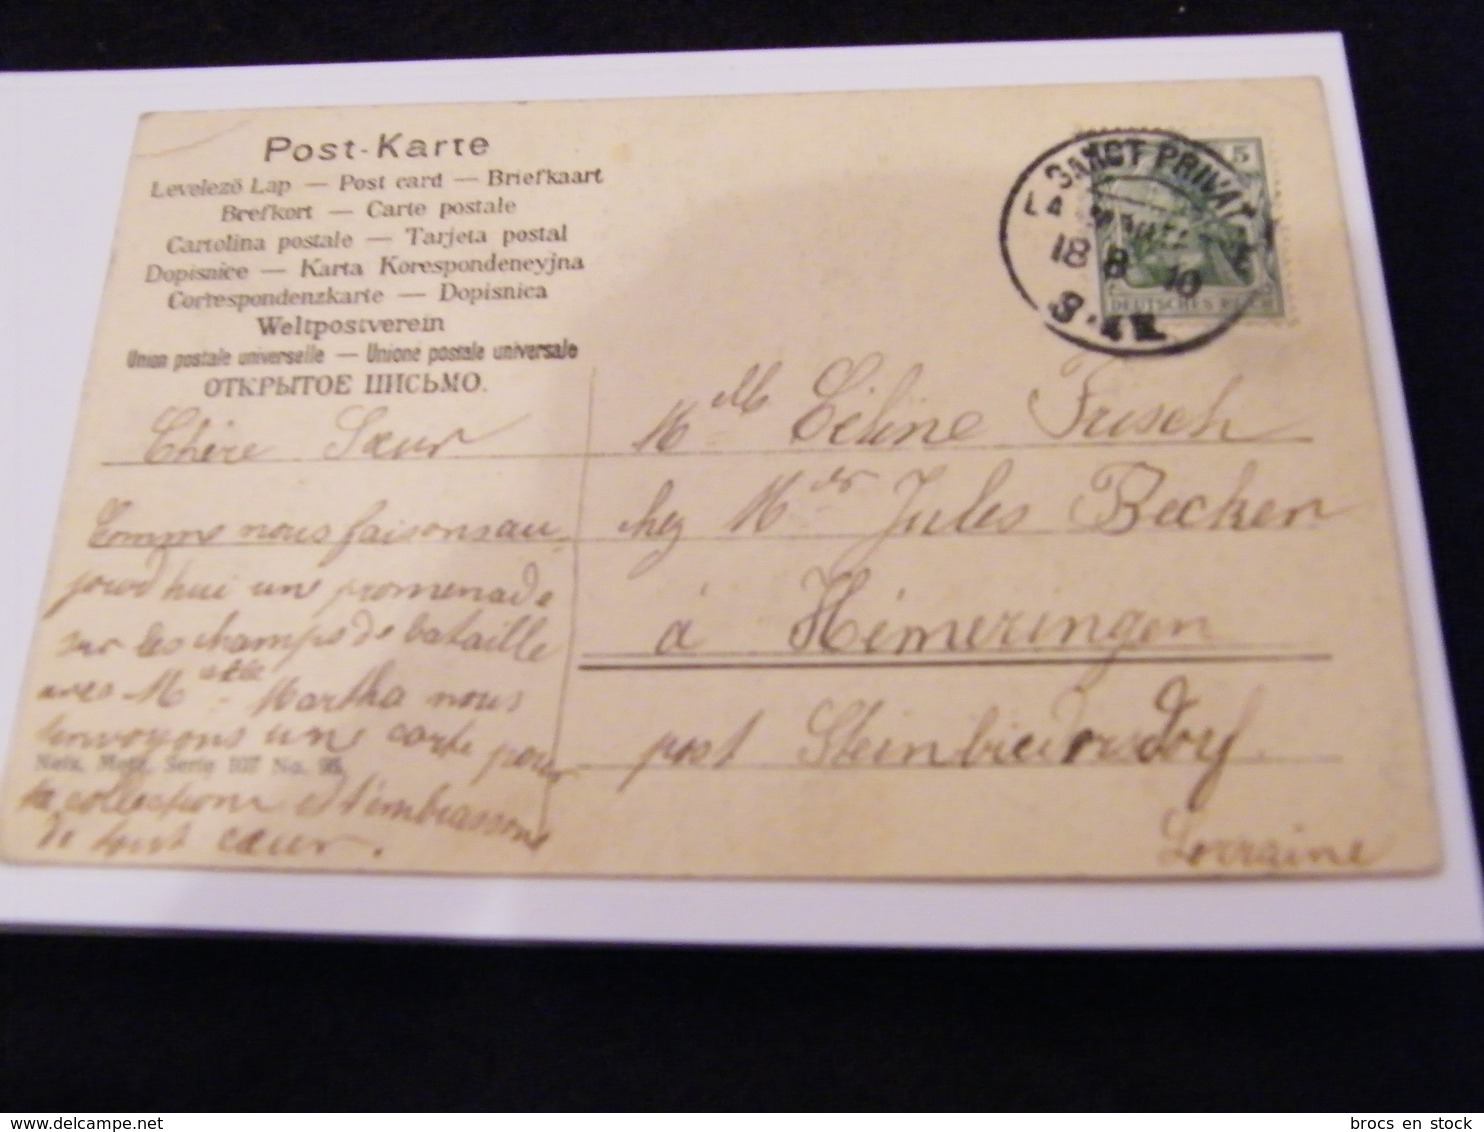 Post-Karte
Levelező Lap — Post card — Briefkaart
Brefkort — Carte postale
Cartolina postale — Tarjeta postal
Dopisnice — Karta Korespondencyjna
Correspondenzkarte — Dopisnica
Weltpostverein
Union postale universelle — Unione postale universale
ОТКРЫТОЕ ПИСЬМО.
SANCT PRIVAT
LA
18 8 10
5
DEUTSCHES REICH
Chère Sœur
Comme nous faisons au-
jourd'hui une promenade
sur les champs de bataille
avec M elle Martha nous
t'envoyons une carte pour
ta collection et t'embrassons
de tout cœur.
Metz, Serie 107 No.
Melle Céline Frisch
chez Mr Jules Becker
à Himeringen
post Steinbiedersdorf
Lorraine
brocs en stock